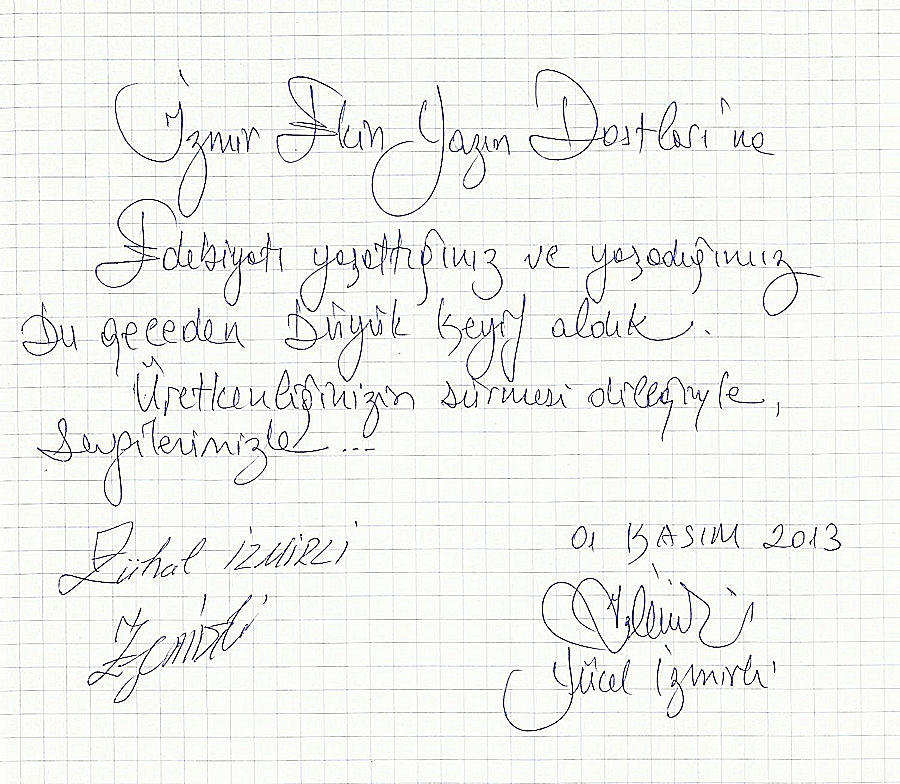 İzmir Ekin Yazın Dostları'na
Edebiyatı yaşattığınız ve yaşadığımız
bu geceden büyük keyif aldık.
Üretkenliğinizin sürmesi dileğiyle,
Sevgilerimizle...
Zühal İZMİRLİ
01 KASIM 2013
Yücel İzmirli